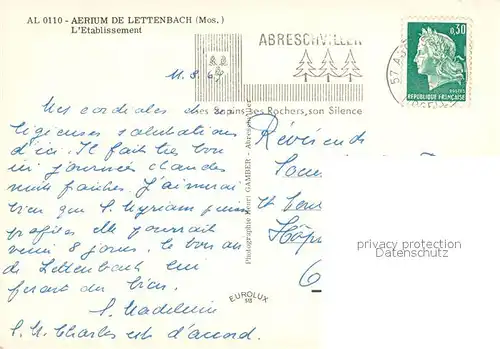 AL 0110 - AERIUM DE LETTENBACH (Mos.)
L'Etablissement
ABRESCHVILLER
ses Sapins, ses Rochers, son Silence
57 A
0,30
POSTES
REPUBLIQUE FRANÇAISE
11.8.6
Mes cordiales et re
ligieuses salutations
d'ici. Il fait très bon
ici journées chaudes
nuits fraîches. J'aimerai
bien que S. Myriam puisse
profiter elle pourrait
venir 8 jours. Le bon air
de Lettenbach lui
ferait du bien.
S. Madeleine
S. M. Charles est d'accord.
Photographie Henri GAMBER - Abreschviller
EUROLUX
Révérende
Soeur
et
Hôp
6
privacy protection
Datenschutz